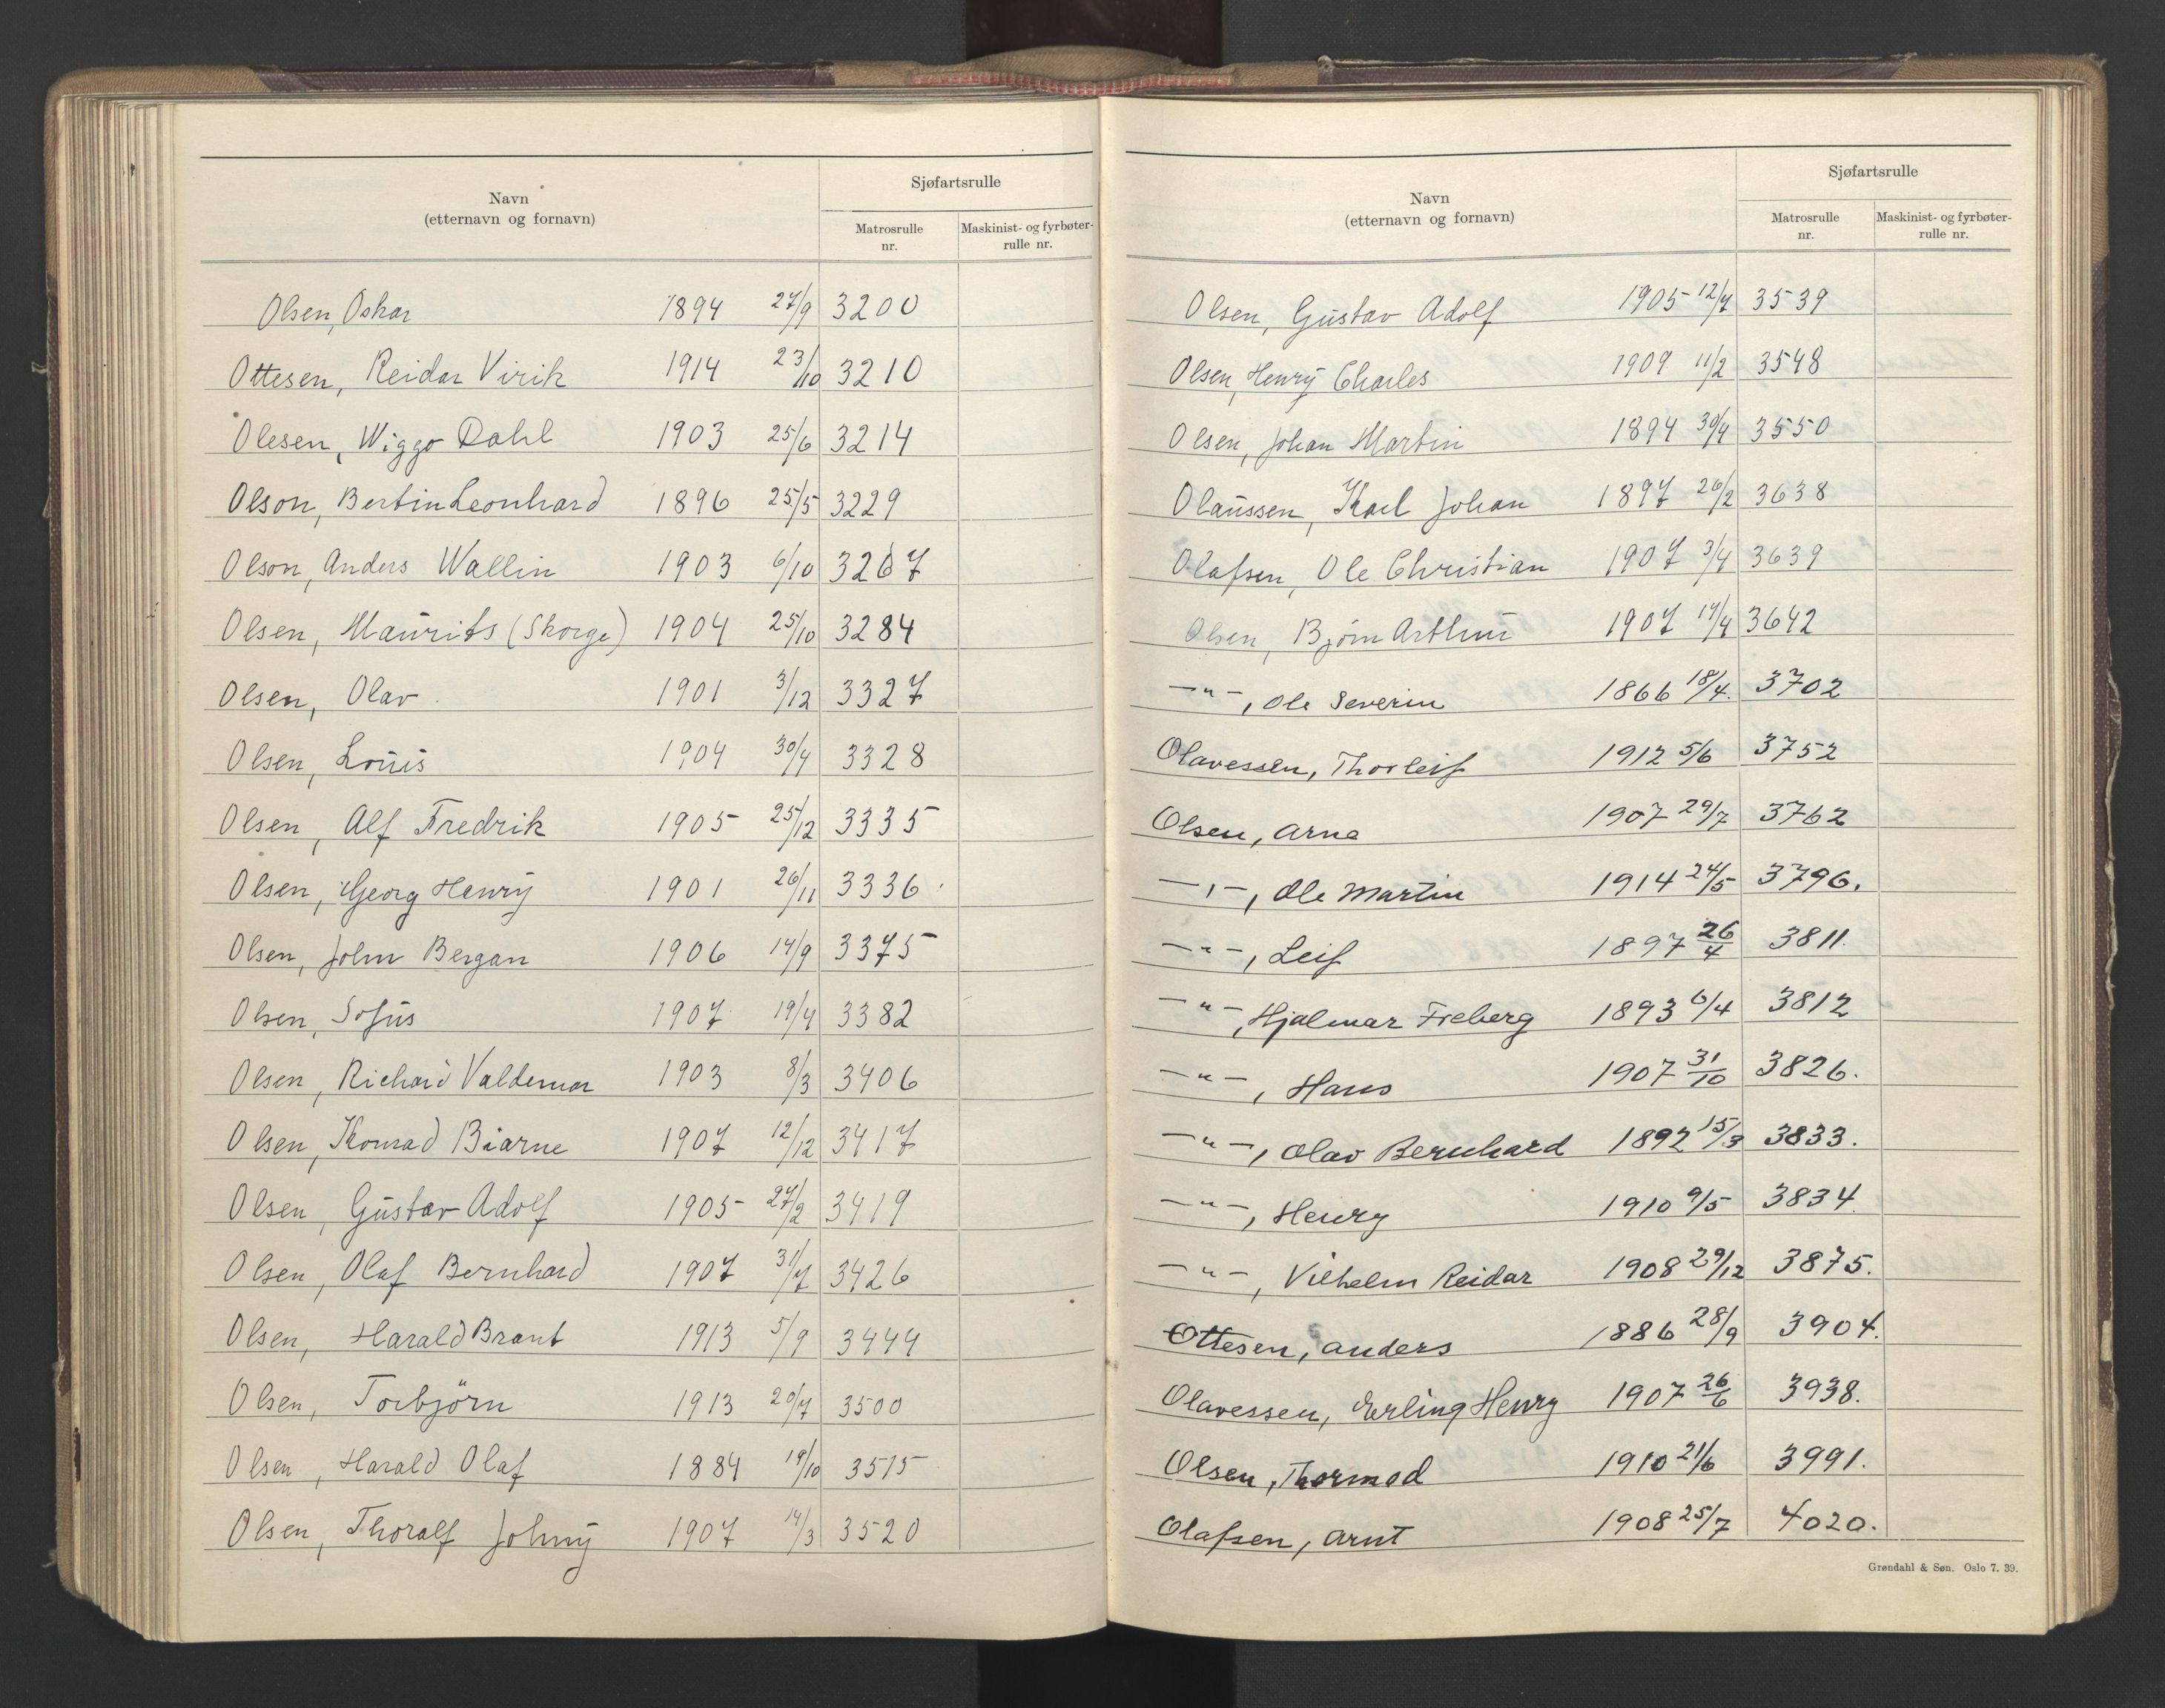 Navn
(etternavn og fornavn)
Sjøfartsrulle
Matrosrulle nr.
Maskinist- og fyrbøter-rulle nr.
Olsen, Oskar 1894 27/9 3200
Ottesen, Reidar Virik 1914 23/10 3210
Olesen, Wiggo Dahl 1903 25/6 3214
Olson, Bertin Leonhard 1896 25/5 3229
Olson, Anders Wallin 1903 6/10 3267
Olsen, Maurits (Skorge) 1904 25/10 3284
Olsen, Olav 1901 3/12 3327
Olsen, Louis 1904 30/4 3328
Olsen, Alf Fredrik 1905 25/12 3335
Olsen, Georg Henry 1901 26/11 3336
Olsen, John Bergan 1906 14/9 3375
Olsen, Sofus 1907 19/4 3382
Olsen, Richard Valdemar 1903 8/3 3406
Olsen, Konrad Biarne 1907 12/12 3417
Olsen, Gustav Adolf 1905 27/2 3419
Olsen, Olaf Bernhard 1907 31/7 3426
Olsen, Harald Brant 1913 5/9 3444
Olsen, Torbjörn 1913 20/7 3500
Olsen, Harald Olaf 1884 19/10 3515
Olsen, Thoralf Johny 1907 14/3 3520
Navn
(etternavn og fornavn)
Sjøfartsrulle
Matrosrulle nr.
Maskinist- og fyrbøter-rulle nr.
Olsen, Gustav Adolf 1905 12/7 3539
Olsen, Henry Charles 1909 11/2 3548
Olsen, Johan Martin 1894 30/4 3550
Olaussen, Karl Johan 1897 26/2 3638
Olafsen, Ole Christian 1907 3/4 3639
Olsen, Bjørn Arthur 1907 14/4 3642
—"—, Ole Severin 1866 18/4. 3702
Olavessen, Thorleif 1912 5/6 3752
Olsen, Arne 1907 29/7 3762
—"—, Ole Martin 1914 24/5 3796.
—"—, Leif 1897 26/4 3811.
—"—, Hjalmar Freberg 1893 6/4 3812
—"—, Hans 1907 31/10 3826.
—"—, Olav Bernhard 1892 15/3 3833.
—"—, Henry 1910 9/5 3834.
—"—, Vilhelm Reidar 1908 29/12 3875.
Ottesen, Anders 1886 28/9 3904.
Olavessen, Erling Henry 1907 26/6 3938.
Olsen, Thormod 1910 21/6 3991.
Olafsen, Arnt 1908 25/7 4020.
Grøndahl & Søn. Oslo 7. 39.